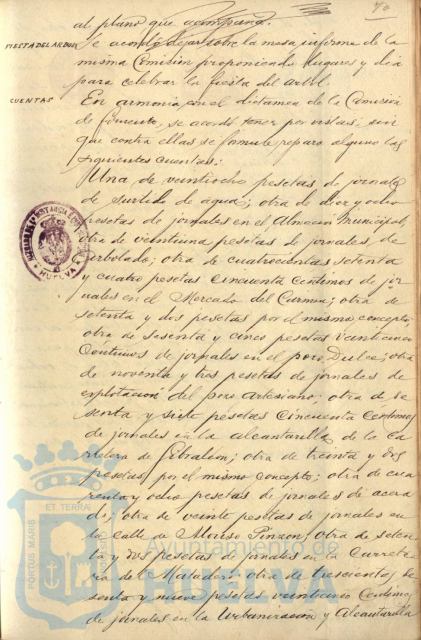 al plano que acompaña.
70
FIESTA DEL ARBOL
Se acordó dejar sobre la mesa informe de la
misma Comisión proponiendo lugares y dia
para celebrar la fiesta del arbol.
CUENTAS
En armonia con el dictamen de la Comisión
de fomento, se acordó tener por vistas, sin
que contra ellas se formule reparo alguno las
siguientes cuentas:
Una de veintiocho pesetas de jornales
de surtido de agua; otra de diez y ocho
pesetas de jornales en el Almacén Municipal;
otra de veintiuna pesetas de jornales, de
arbolado; otra de cuatrocientas setenta
y cuatro pesetas cincuenta centimos de jor
nales en el Mercado del Carmen; otra de
setenta y dos pesetas por el mismo concepto;
otra de sesenta y cinco pesetas veinticinco
centimos de jornales en el pozo Dulce; otra
de noventa y tres pesetas de jornales de
explotacion del pozo artesiano; otra de se
senta y siete pesetas cincuenta centimos
de jornales en la alcantarilla de la ca
rretera de Gibraleon; otra de treinta y dos
pesetas por el mismo concepto; otra de cua
renta y ocho pesetas de jornales de acera
do; otra de veinte pesetas de jornales en
la calle de Alonso Pinzon; otra de seten
ta y dos pesetas de jornales en la Carrete
ra del Matadero; otra de trescientas se
senta y nueve pesetas veinticinco centimos
de jornales en la Urbanización y Alcantarilla
HUELVA
PORTUS MARIS
ET TERRAE
Ayuntamiento de
HUELVA